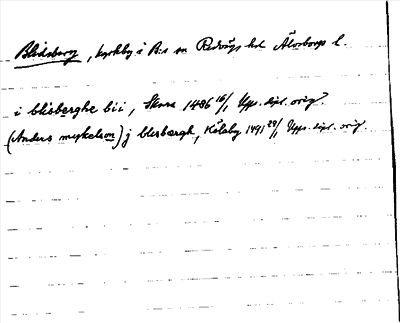 Blidsberg, kyrkby i B:s sn Redvägs hd Älvsborgs l.
i blisberghe bii, Skara 1486 16/1, Upps. dipl. orig.
(Anders mykelson) j blesbærgh, Kölaby 1491 29/1, Upps. dipl. orig.